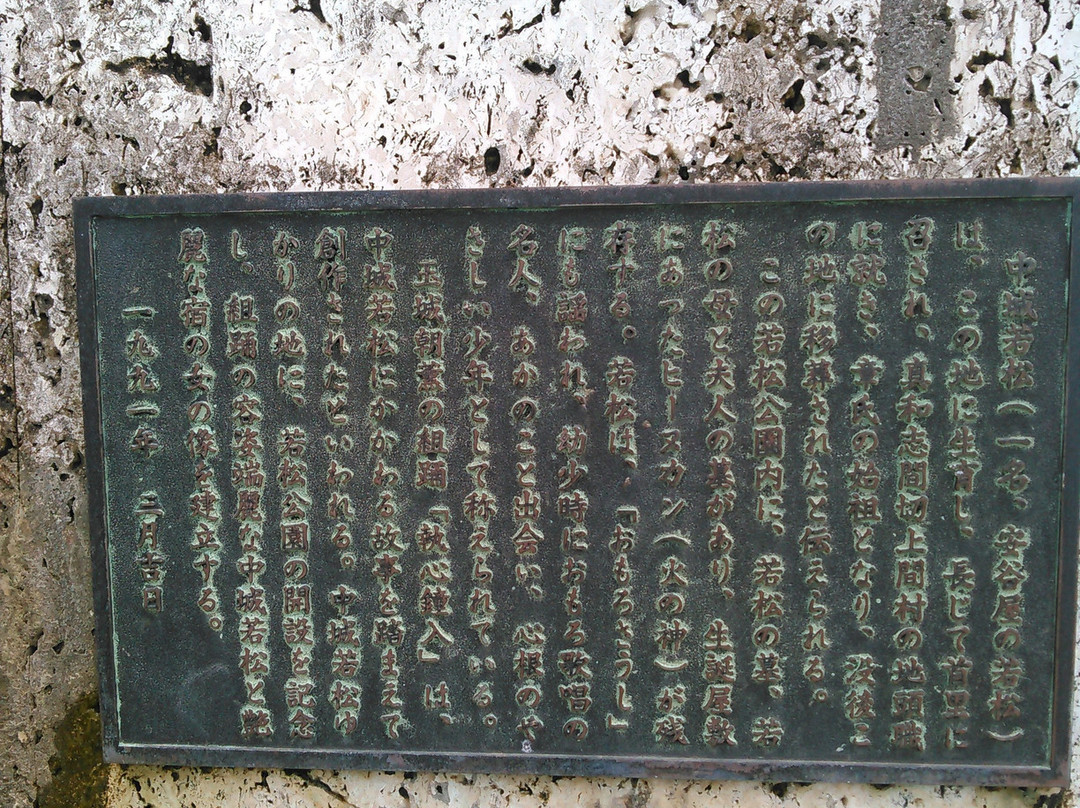 中城若松(一名、安谷屋の若松)
は、この地に生育し、長じて首里に
召され、真和志間切上間村の地頭職
に就き、韋氏の始祖となり、没後こ
の地に移葬されたと伝えられる。
この若松公園内に、若松の墓、若
松の母と夫人の墓があり、生誕屋敷
にあったヒーヌカン(火の神)が残
存する。若松は、「おもろさうし」
にも謡われ、幼少時におもろ歌唱の
名人、あかのこと出会い、心根のや
さしい少年として称えられている。
玉城朝薫の組踊「執心鐘入」は、
中城若松にかかわる故事を踏まえて
創作されたといわれる。中城若松ゆ
かりの地に、若松公園の開設を記念
し、組踊の容姿端麗な中城若松と艶
麗な宿の女の像を建立する。
一九九一年 三月吉日